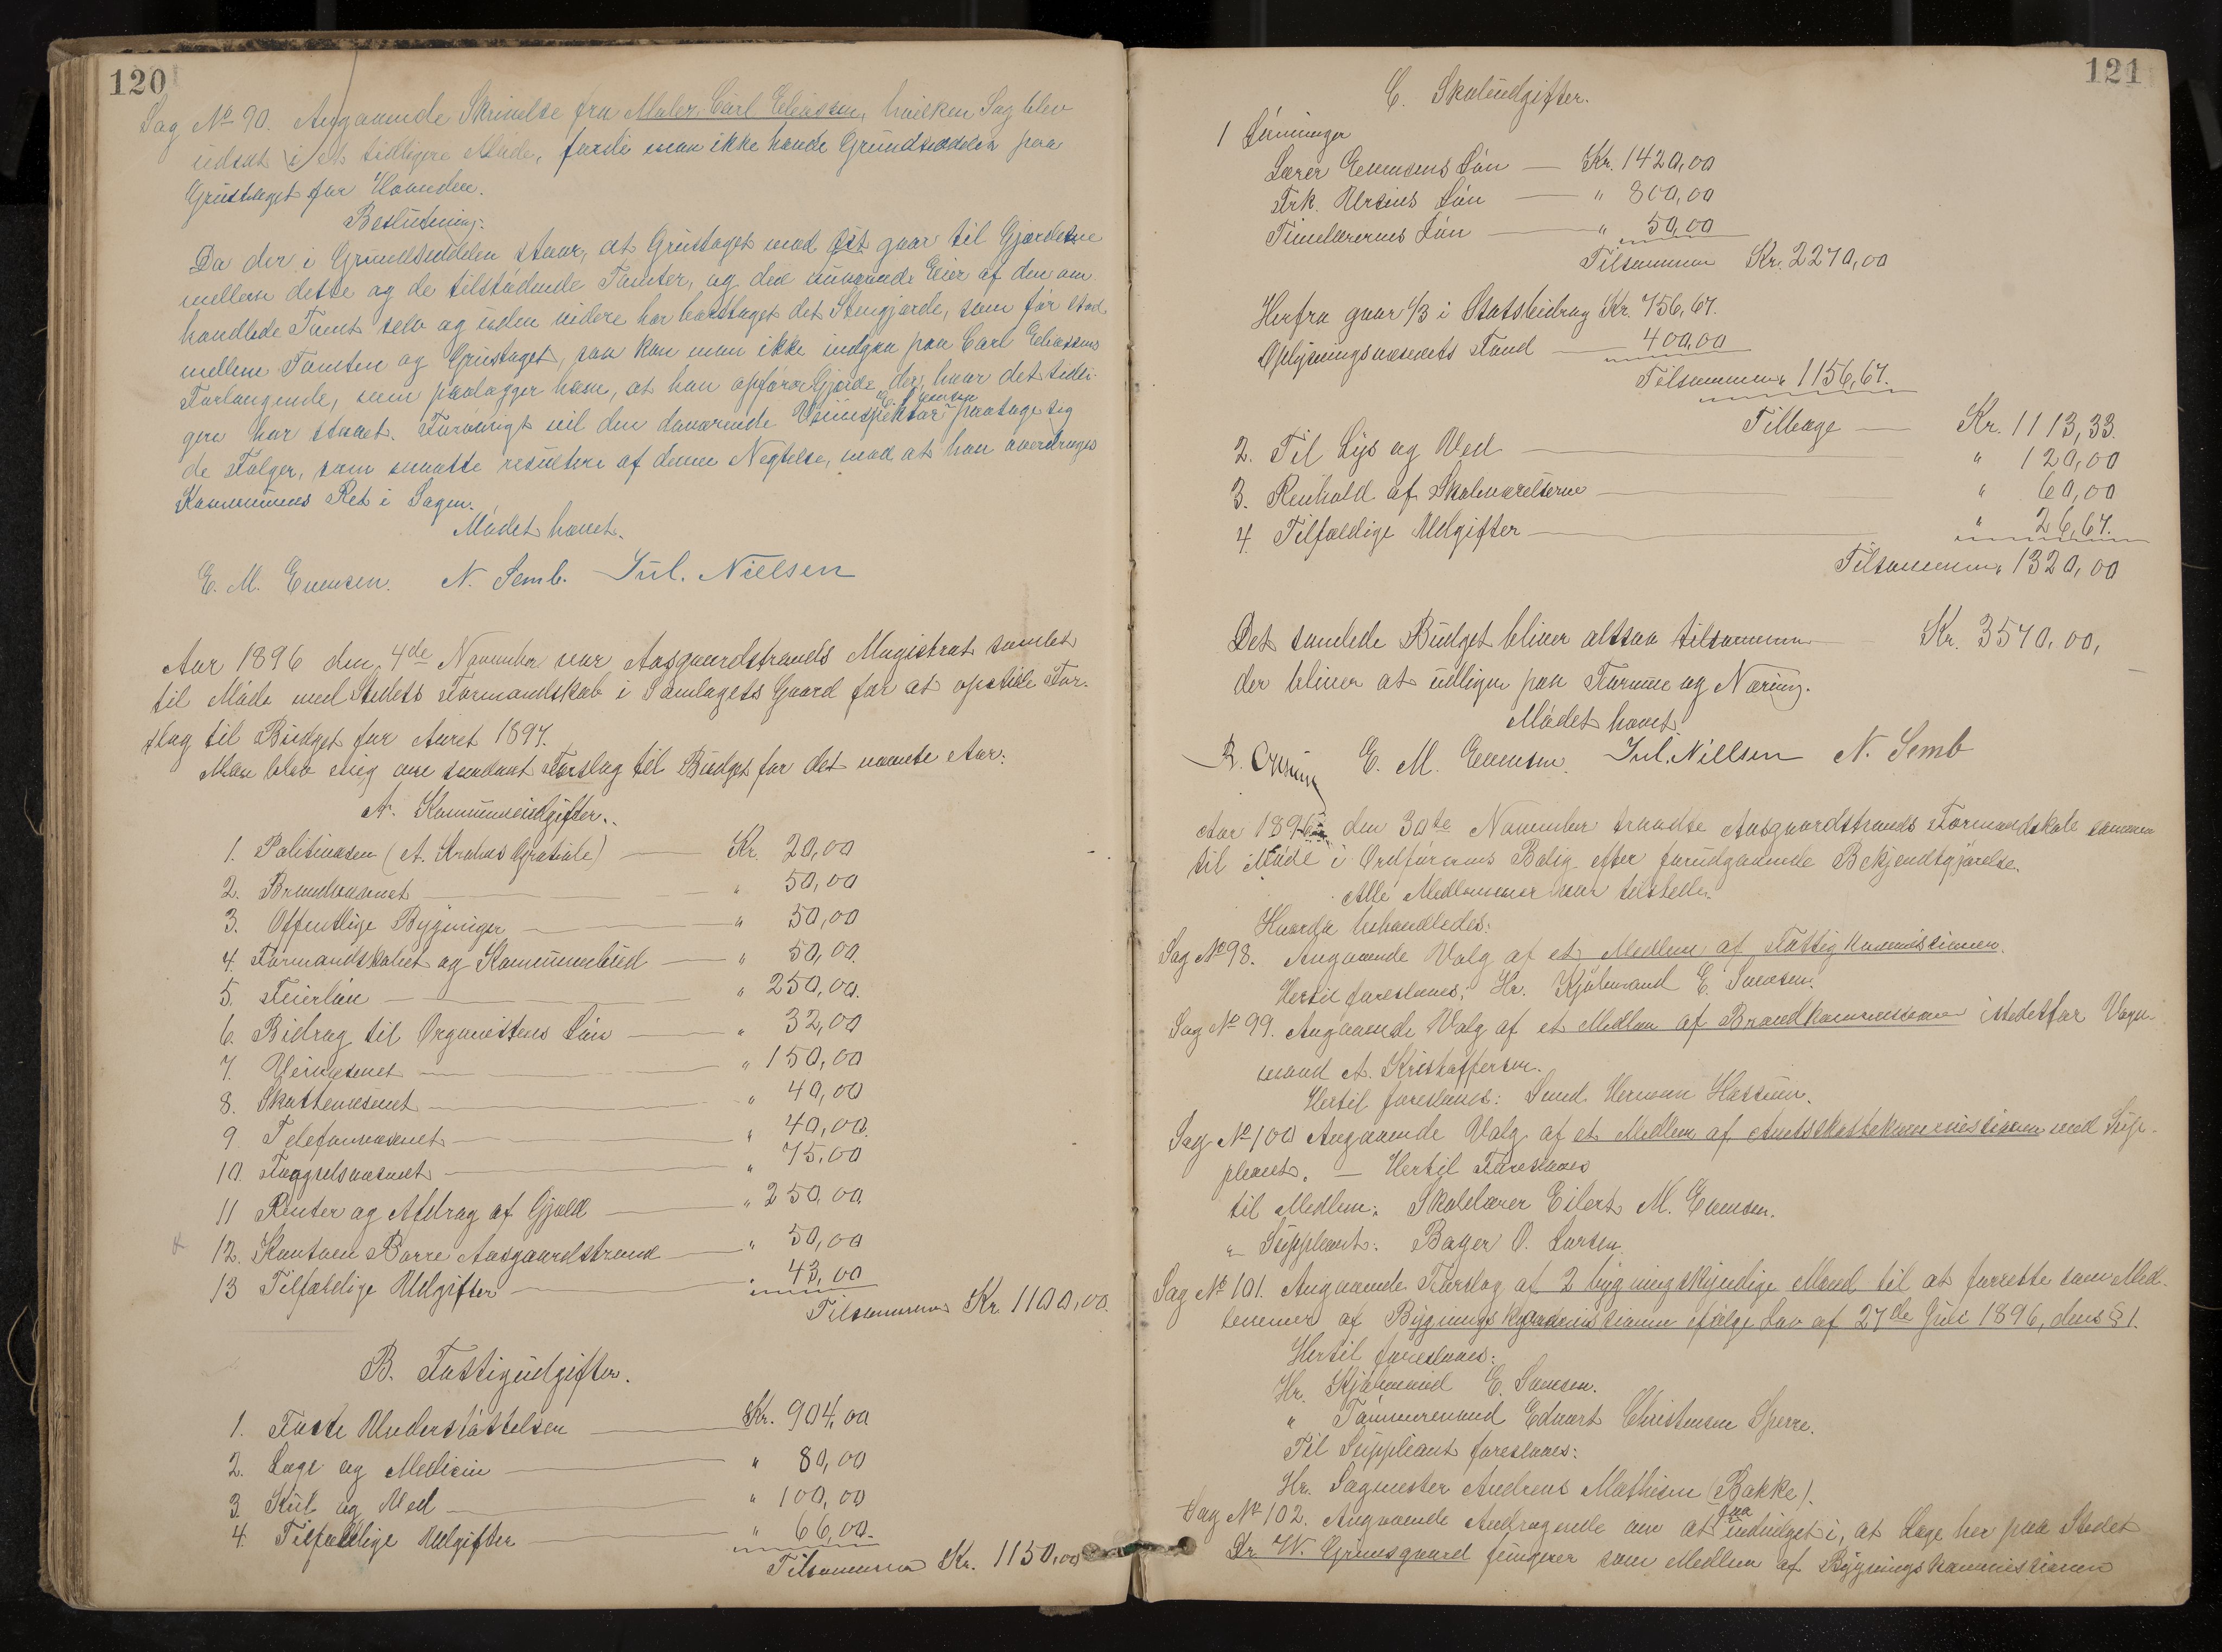 120
Sag No 90. Angaaende Skrivelse fra Maler Carl Eliassen, hvilken Sag blev
udsat i et tidligere Møde, fordi man ikke havde Grundseddelen paa
Grustaget for Haanden.
Beslutning:
Da der i Grundseddelen staar, at Grustaget med Ret gaar til Gjærderne
mellem dette og de tilstødende Tomter, og den nuværende Eier af den om
handlede Tomt selv og uden videre har borttaget det Stengjærde, som før stod
mellem Tomten og Grustaget, saa kan man ikke indgaa paa Carl Eliassens
Forlangende, men paalægger ham, at han opfører Gjærde der, hvor det tidli-
gere har staaet. Forøvrigt vil den daværende Veiinspektør paatage sig
de Følger, som maatte resultere af denne Negtelse, mod at han overdrages
Kommunens Ret i Sagen.
Mødet hævet.
E. M. Evensen. N. Semb. Jul. Nielsen
Aar 1896 den 4de November var Aasgaardstrands Magistrat samlet
til Møde med Stedets Formandskab i Samlagets Gaard for at opstille For-
slag til Budget for Aaret 1897.
Man blev enig om saadant Forslag til Budget for det nævnte Aar:
A. Kommuneudgifter.
1. Politivæsen (A. Gratiale) Kr. 20,00
2. Brandvæsenet " 50,00
3. Offentlige Bygninger " 50,00
4. Formandskabet og Kommunebud " 50,00
5. Feierløn " 250,00
6. Bidrag til Organistens Løn " 32,00
7. Veivæsenet " 150,00
8. Skattevæsenet " 40,00
9. Telefonvæsenet " 40,00
10. Fængselsvæsenet " 75,00
11 Renter og Afdrag af Gjæld " 250,00
12. Kontoen Borre Aasgaardstrand " 50,00
13 Tilfældige Udgifter " 43,00
Tilsammen Kr 1100,00.
B. Fattigudgifter.
1. Faste Understøttelser Kr. 904,00
2. Læge og Medicin " 80,00
3. Kul og Ved " 100,00
4. Tilfældige Udgifter " 66,00
Tilsammen Kr. 1150,00
121
C. Skoleudgifter.
1 Lønninger
Lærer Evensens Løn Kr. 1420,00
Frk. Ursins Løn " 800,00
Timelærernes Løn " 50,00
Tilsammen Kr. 2270,00
Herfra gaar 1/3 i Statsbidrag Kr. 756,67.
Oplysningsvæsenets Fond 400,00
Tilsammen " 1156,67.
Tilbage Kr. 1113,33.
2. Til Lys og Ved " 120,00
3. Renhold af Skoleværelserne " 60,00
4. Tilfældige Udgifter " 26,67.
Tilsammen " 1320,00
Det samlede Budget bliver altsaa tilsammen Kr. 3570,00,
der bliver at udligne paa Formue og Næring.
Mødet hævet.
E. M. Evensen. Jul. Nielsen N. Semb
Aar 1896 den 30te November traadte Aasgaardstrands Formandskab sammen
til Møde i Ordførerens Bolig efter forudgaaende Bekjendtgjørelse.
Alle Medlemmer var tilstede.
Hvorda behandledes:
Sag No 98. Angaaende Valg af et Medlem af Fattigkommissionen.
Hertil foreslaaes: Hr. Kjøbmand E. Svensen.
Sag No 99. Angaaende Valg af et Medlem af Brandkommissionen istedetfor Vogn-
mand A. Kristoffersen.
Hertil foreslaaes: Smed Herman Hassum.
Sag No 100 Angaaende Valg af et Medlem af Amtsskattekommissionen med Sup-
pleant. – Hertil Foreslaaes
til Medlem: Skolelærer Eilert M. Evensen.
" Suppleant: Bager O. Larsen.
Sag No 101. Angaaende Forslag af 2 bygningskyndige Mænd til at forrette som Med-
lemmer af Bygningskommissionen ifølge Lov af 27de Juli 1896, dens § 1.
Hertil foreslaaes:
Hr. Kjøbmand E. Svensen.
" Tømmermand Edvart Christensen Sperre.
Til Suppleant foreslaaes:
Hr. Sagmester Andreas Mathisen (Bakke).
Sag No 102. Angaaende Andragende om at faa indvilget i, at Læge her paa Stedet
Dr. W. Grønsgaard fungerer som Medlem af Bygningskommissionen